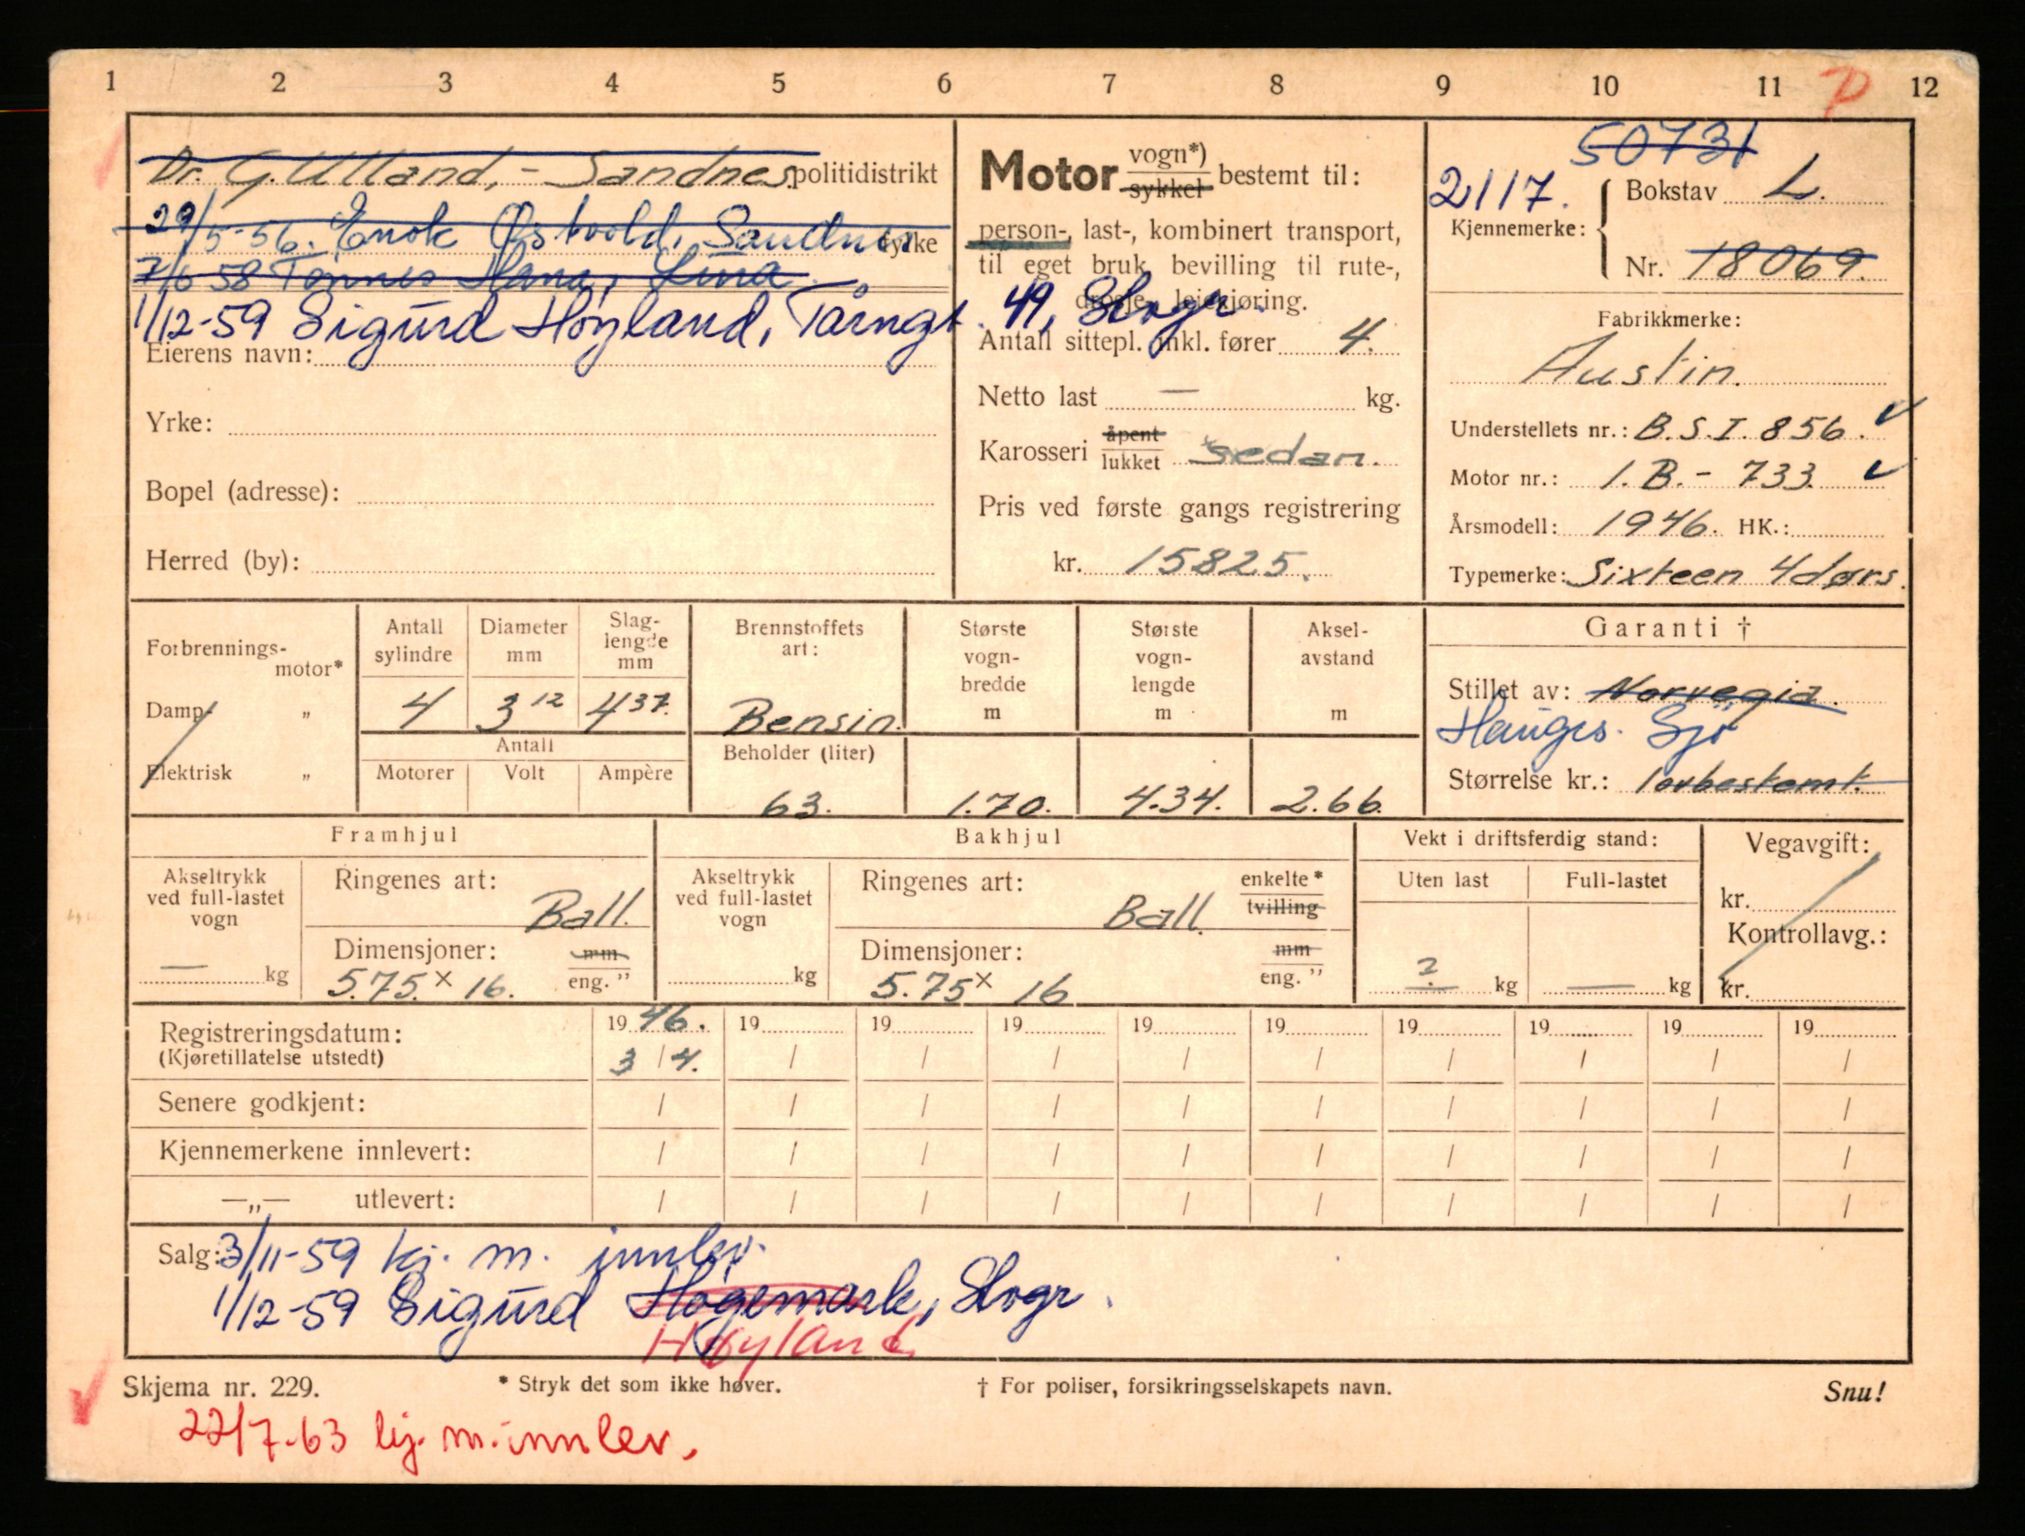 1 2 3 4 5 6 7 8 9 10 11 12
Dr. G. Ulland, - Sandnes politidistrikt
29/5-56. Enok Østvold, Sandnes yrke
7/6 58 Tønnes Hana, Lura
1/12-59 Sigurd Høyland, Tårngt. 49, Stvgr.
Eierens navn:
Yrke:
Bopel (adresse):
Herred (by):
Motor vogn*) sykkel bestemt til:
person-, last-, kombinert transport,
til eget bruk, bevilling til rute-,
drosje, leiekjøring.
Antall sittepl. inkl. fører 4.
Netto last — kg.
Karosseri åpent lukket sedan.
Pris ved første gangs registrering
kr. 15825.
50731
2117.
Kjennemerke:
Bokstav L.
Nr. 18069.
Fabrikkmerke:
Austin.
Understellets nr.: B.S.1. 856.
Motor nr.: 1. B. - 733.
Årsmodell: 1946. HK.:
Typemerke: Sixteen 4dørs.
Forbrennings-motor*
Damp- „
Elektrisk „
Antall sylindre 4
Diameter mm 3 12
Slag-lengde mm 4 37.
Antall
Motorer Volt Ampère
Brennstoffets art:
Bensin.
Beholder (liter)
63.
Største vogn-bredde m
1.70.
Største vogn-lengde m
4.34.
Aksel-avstand m
2.66.
Garanti †
Stillet av: Norvegia.
Hauges. Sjø
Størrelse kr.: lovbestemt.
Framhjul
Akseltrykk ved full-lastet vogn
— kg
Ringenes art:
Ball.
Dimensjoner: mm eng.”
5.75 x 16.
Bakhjul
Akseltrykk ved full-lastet vogn
kg
Ringenes art: enkelte* tvilling
Ball.
Dimensjoner: mm eng.”
5.75 x 16
Vekt i driftsferdig stand:
Uten last Full-lastet
? kg — kg
Vegavgift:
kr.
Kontrollavg.:
kr.
Registreringsdatum: 19 46. 19 19 19 19 19 19 19 19 19
(Kjøretillatelse utstedt) 3 / 4. / / / / / / / / /
Senere godkjent: / / / / / / / / / /
Kjennemerkene innlevert: / / / / / / / / / /
—„— utlevert: / / / / / / / / / /
Salg: 3/11-59 kj. m. innlev.
1/12-59 Sigurd Høgemark, Stvgr.
Høyland.
Skjema nr. 229. * Stryk det som ikke høver. † For poliser, forsikringsselskapets navn. Snu!
22/7-63 kj. m. innlev.